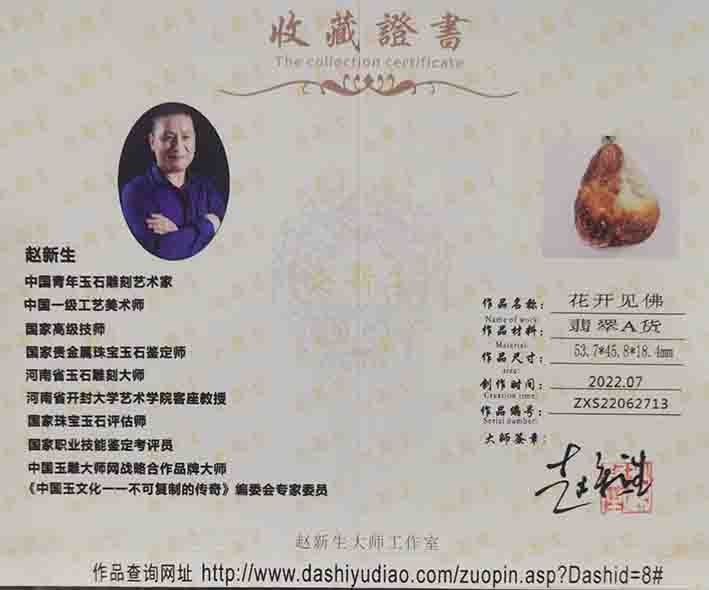 收藏證書
The collection certificate
赵新生
中国青年玉石雕刻艺术家
中国一级工艺美术师
国家高级技师
国家贵金属珠宝玉石鉴定师
河南省玉石雕刻大师
河南省开封大学艺术学院客座教授
国家珠宝玉石评估师
国家职业技能鉴定考评员
中国玉雕大师网战略合作品牌大师
《中国玉文化一一不可复制的传奇》编委会专家委员
作品名称: 花开见佛
Name of work:
作品材料: 翡翠A货
Material:
作品尺寸: 53.7*45.8*18.4mm
area:
创作时间: 2022.07
Creation time:
作品编号: ZXS22062713
Serial number:
大师签章:
赵新生
赵新生大师工作室
作品查询网址 http://www.dashiyudiao.com/zuopin.asp?Dashid=8#